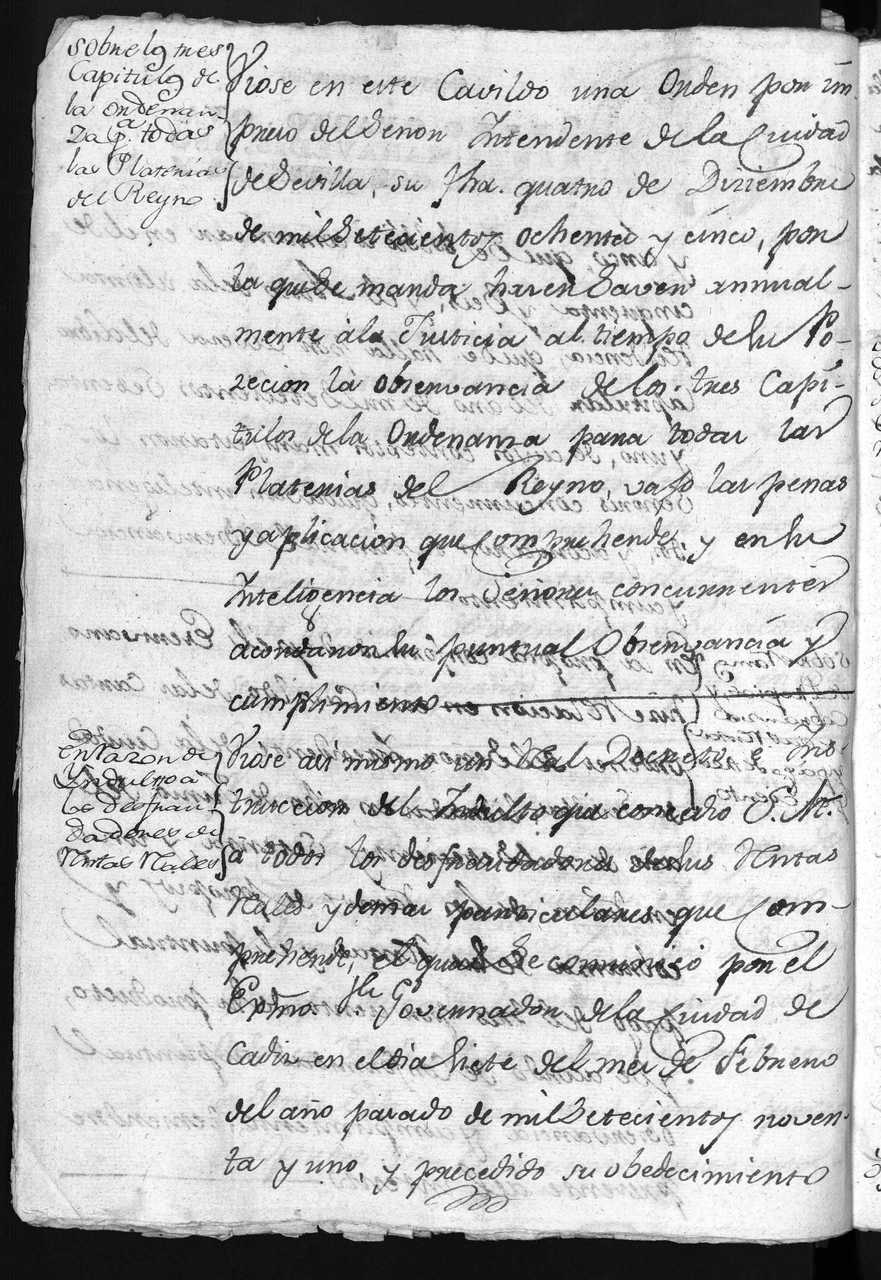 Sobre los tres
Capitulos de
la ordenan-
za pª. todas
las Platerias
del Reyno
Viose en este Cavildo una Orden por im-
preso del Señor Intendente de la Ciudad
de Sevilla, su fha. quatro de Diziembre
de mil Setecientos ochenta y cinco, por
la que Se manda hazer Saver annual-
mente à la Justicia al tiempo de su Po-
zecion la observancia de los tres Capi-
tulos de la Ordenanza para todas las
Platerias del Reyno, vajo las penas
y aplicacion que Comprehende, y en su
Inteligencia los Señores concurrentes
acordaron su puntual Observancia y
cumplimiento
En Razon de
Yndulto a
los Defrau-
dadores de
Rentas Rales
Viose asi mismo un Real Decreto e Ins-
truccion del Indulto que concedio S. M.
a todos los defraudadores de sus Rentas
Rales y demas particulares que Com-
prehende, el qual Se comunicó por el
Exmo. Sr. Governador de la Ciudad de
Cadiz en el dia Siete del mes de Febrero
del año pasado de mil Setecientos noven-
ta y uno, y precedido su obedecimiento